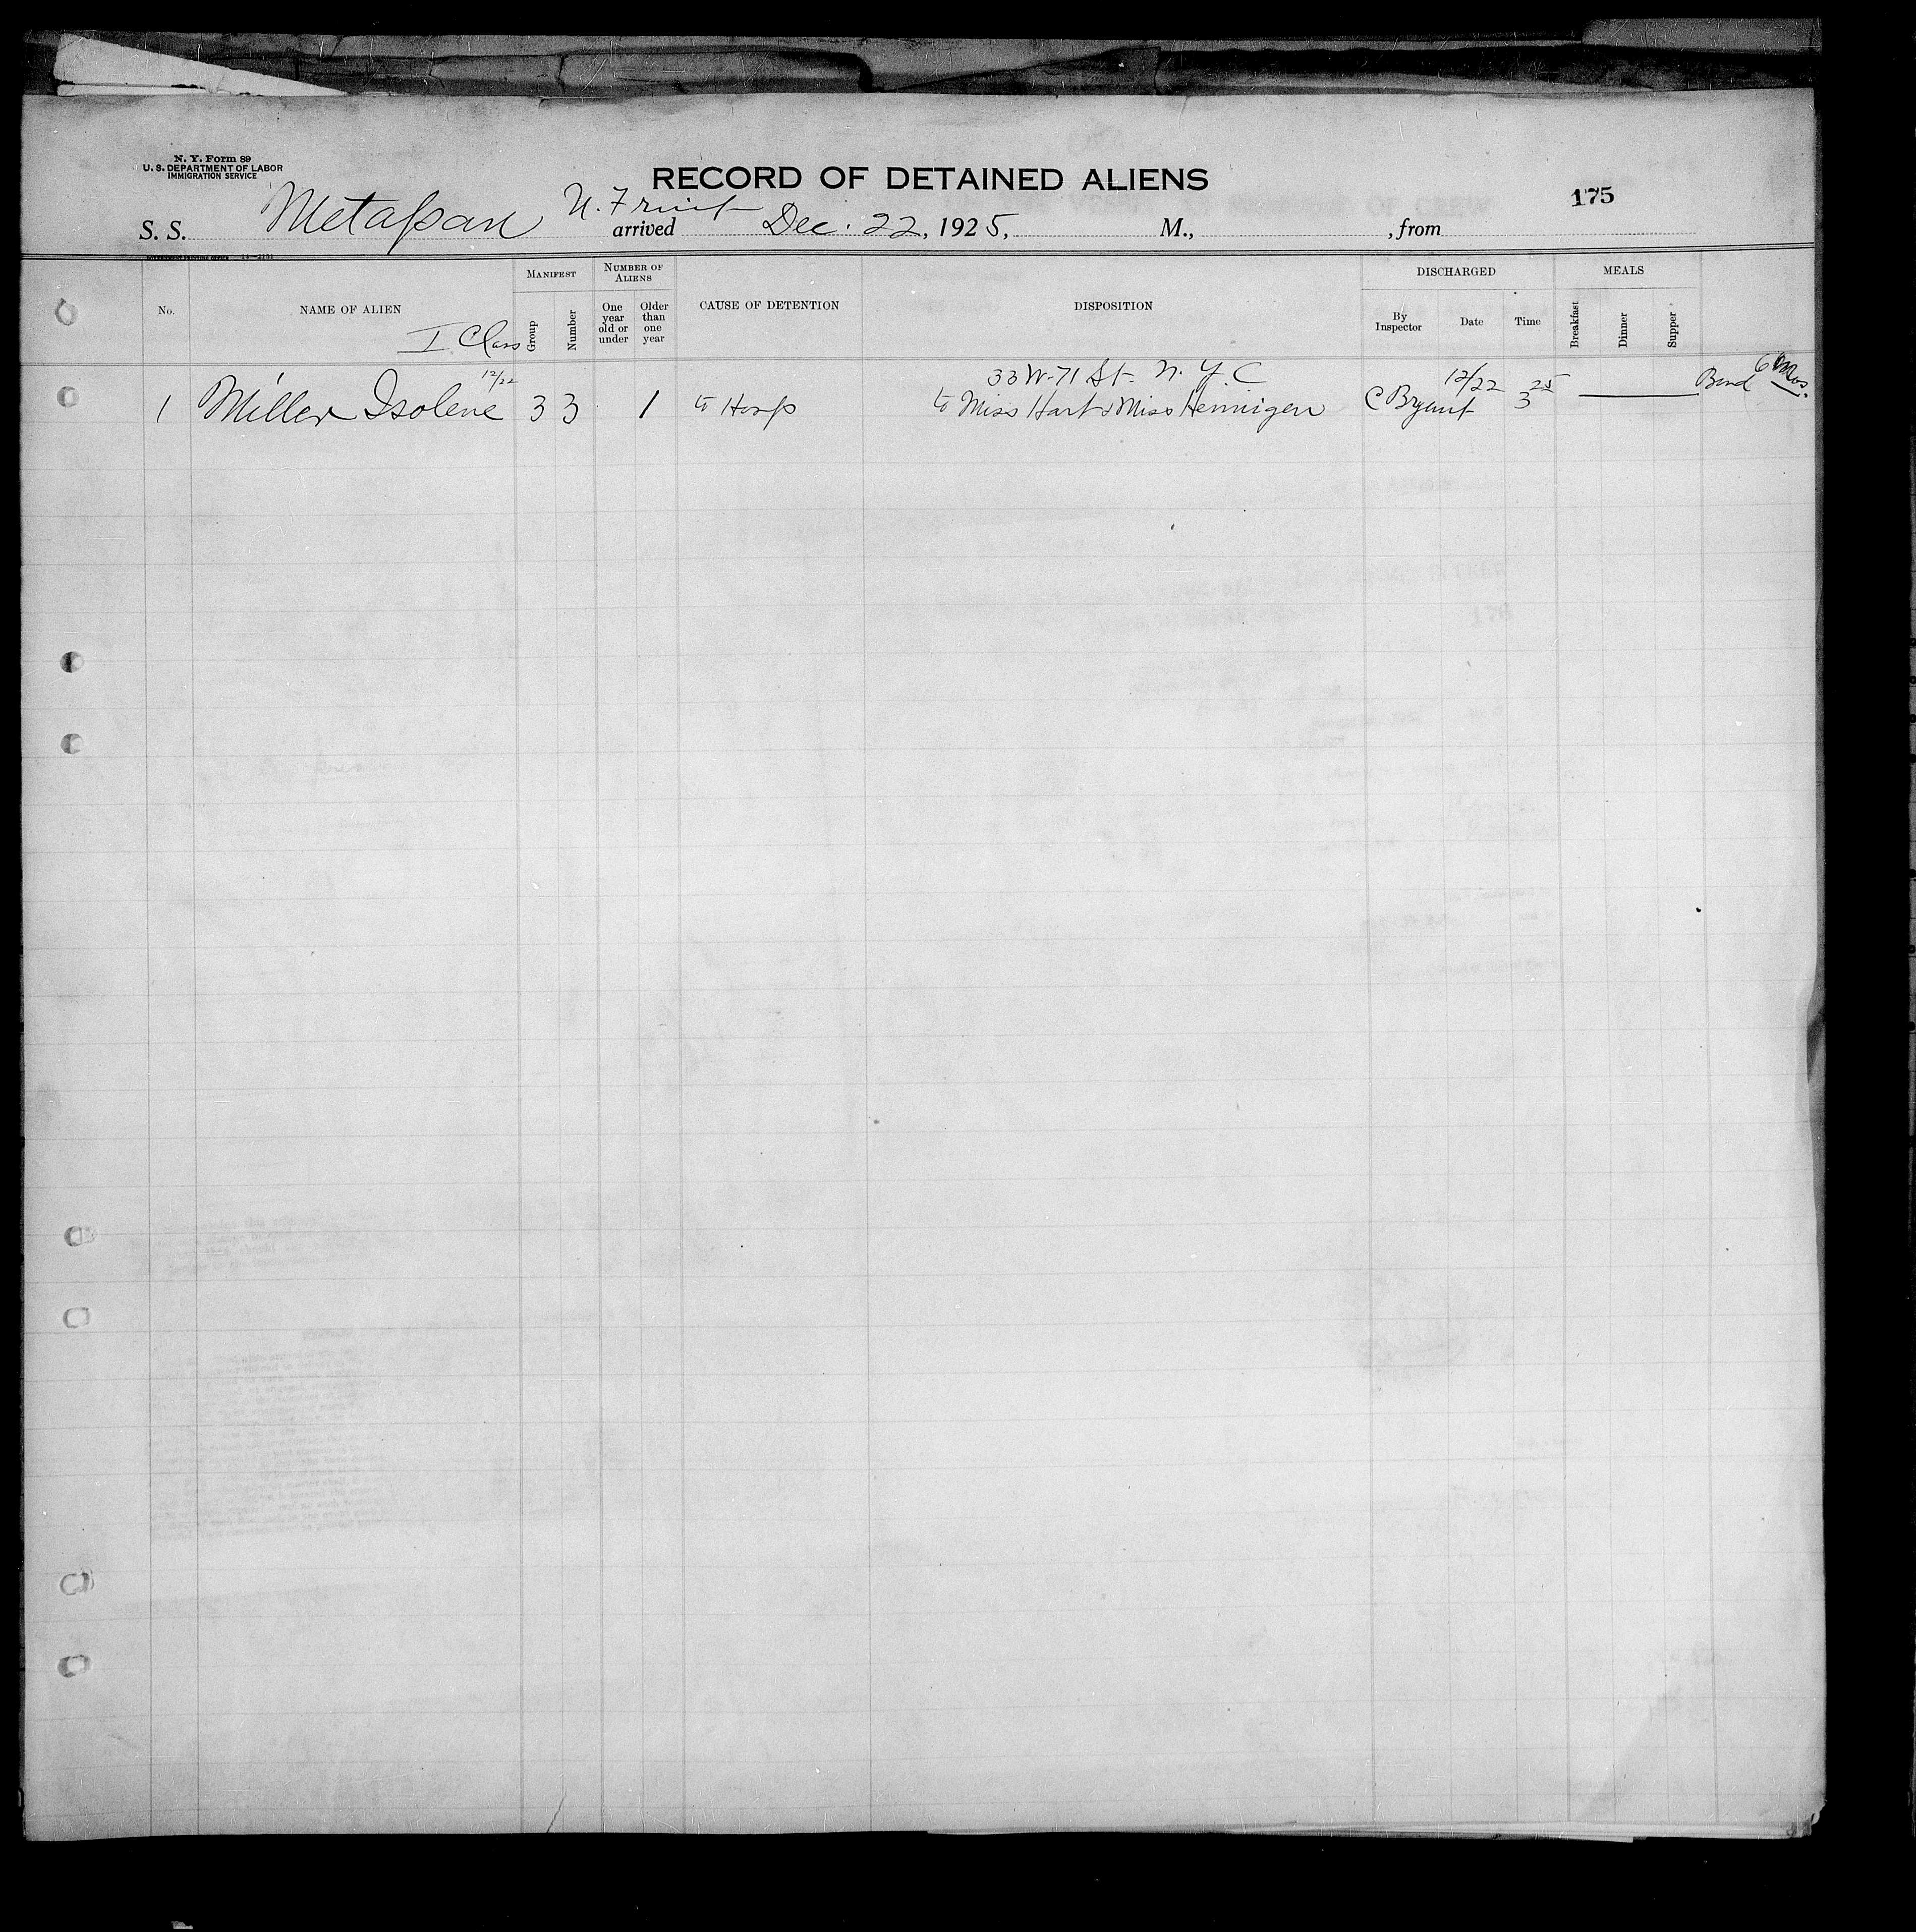 N. Y. Form 89
U. S. DEPARTMENT OF LABOR
IMMIGRATION SERVICE
RECORD OF DETAINED ALIENS
175
S. S. Metapan U. Fruit arrived Dec. 22, 1925, M., , from
No.
NAME OF ALIEN
I Class
MANIFEST
Group
Number
NUMBER OF ALIENS
One year old or under
Older than one year
CAUSE OF DETENTION
DISPOSITION
DISCHARGED
By Inspector
Date
Time
MEALS
Breakfast
Dinner
Supper
12/22 33 W-71 St. N. Y. C 12/22 3 25 Bond 6 Mos.
1 Miller Isolene 3 3 1 to Hosp to Miss Hart & Miss C Bryant